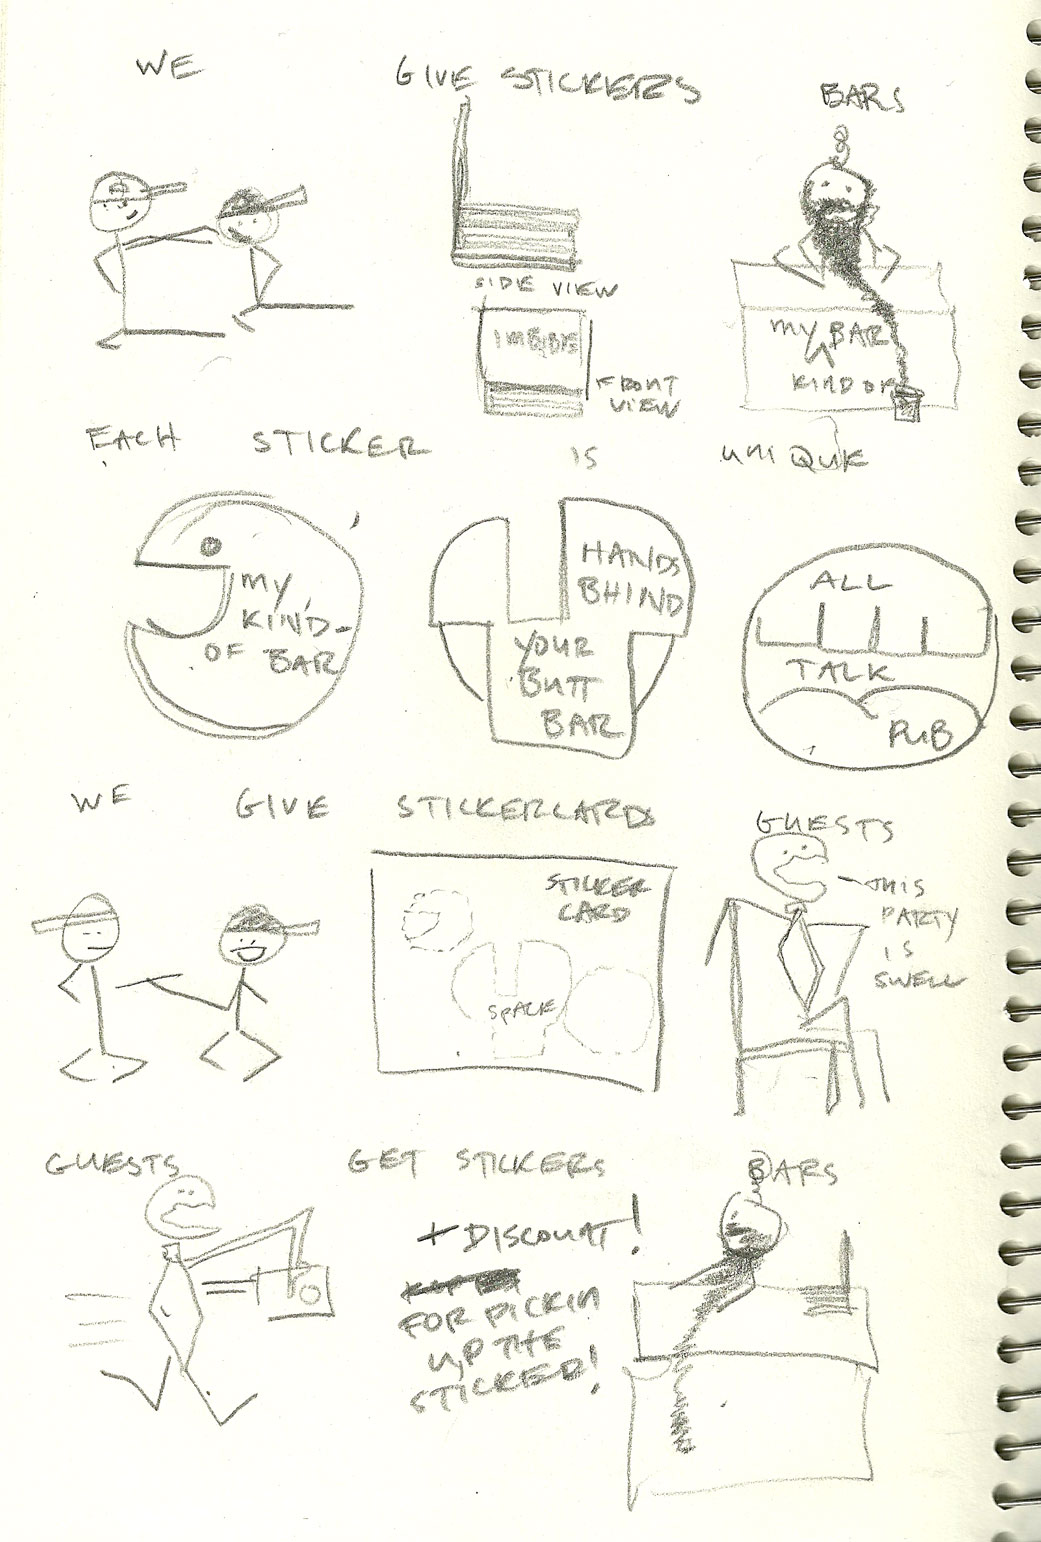 WE GIVE STICKERS BARS
SIDE VIEW
IMBIBE
FRONT
VIEW
MY BAR
KIND OF
EACH STICKER IS UNIQUE
MY
KIND
OF BAR
HANDS
BHIND
YOUR
BUTT
BAR
ALL
TALK
PUB
WE GIVE STICKERCARDS GUESTS
STICKER
CARD
SPACE
THIS
PARTY
IS
SWELL
GUESTS GET STICKERS BARS
+ DISCOUNT!
FOR PICKIN
UP THE
STICKER!